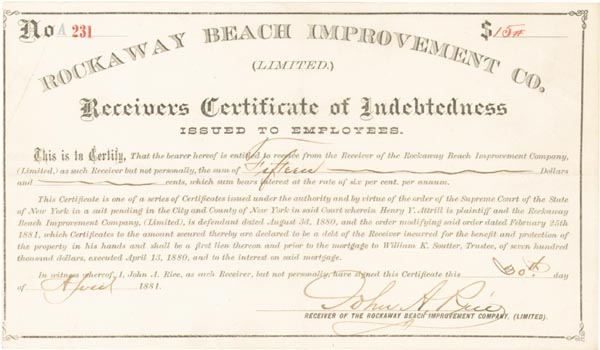 No A 231
$15 00
ROCKAWAY BEACH IMPROVEMENT CO.
(LIMITED.)
Receivers Certificate of Indebtedness
ISSUED TO EMPLOYEES.
This is to Certify, That the bearer hereof is entitled to receive from the Receiver of the Rockaway Beach Improvement Company,
(Limited,) as such Receiver but not personally, the sum of Fifteen Dollars
and cents, which sum bears interest at the rate of six per cent. per annum.
This Certificate is one of a series of Certificates issued under the authority and by virtue of the order of the Supreme Court of the State
of New York in a suit pending in the City and County of New York in said Court wherein Henry Y. Attrill is plaintiff and the Rockaway
Beach Improvement Company, (Limited,) is defendant dated August 3d, 1880, and the order modifying said order dated February 25th
1881, which Certificates to the amount secured thereby are declared to be a debt of the Receiver incurred for the benefit and protection of
the property in his hands and shall be a first lien thereon and prior to the mortgage to William K. Soutter, Trustee, of seven hundred
thousand dollars, executed April 13, 1880, and to the interest on said mortgage.
In witness whereof, I John A. Rice, as such Receiver, but not personally, have signed this Certificate this 30th day
of April 1881.
John A Rice
RECEIVER OF THE ROCKAWAY BEACH IMPROVEMENT COMPANY, (LIMITED).